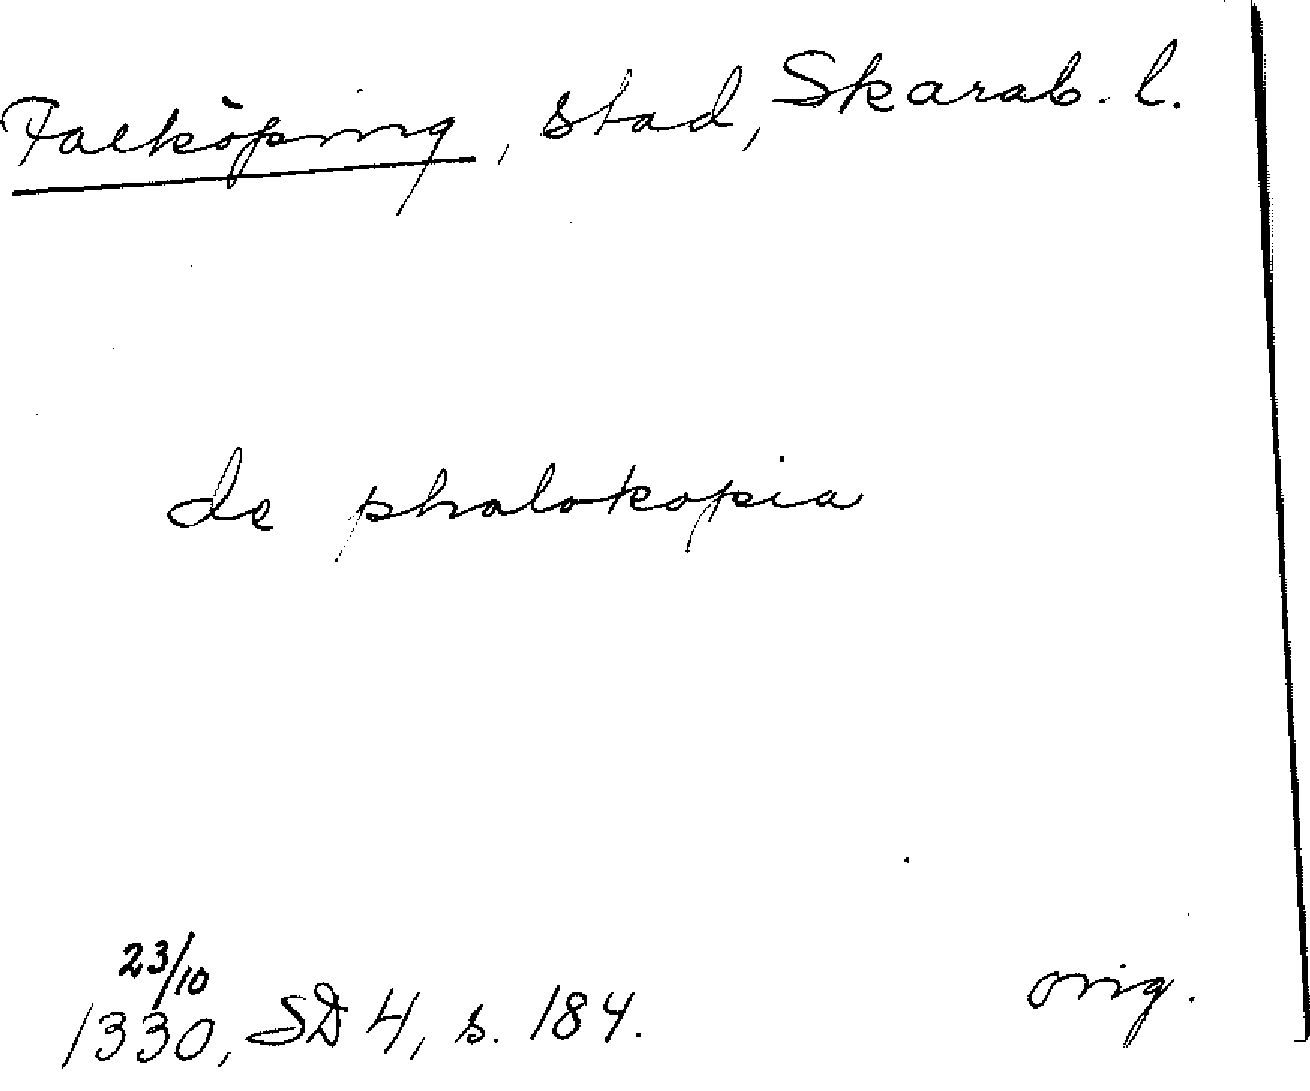 Falköping, stad, Skarab. l.
de phalokopia
23/10
1330, SD 4, s. 184.
orig.